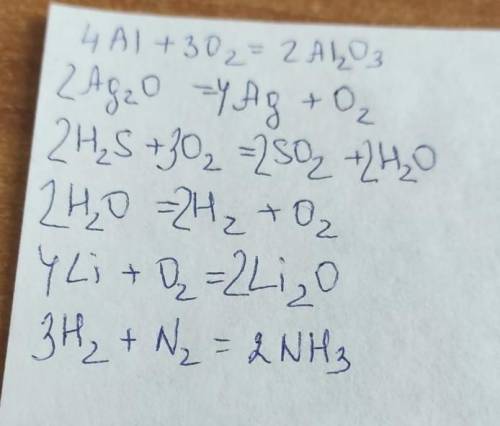 4Al + 3O₂ = 2Al₂O₃
2Ag₂O = 4Ag + O₂
2H₂S + 3O₂ = 2SO₂ + 2H₂O
2H₂O = 2H₂ + O₂
4Li + O₂ = 2Li₂O
3H₂ + N₂ = 2NH₃